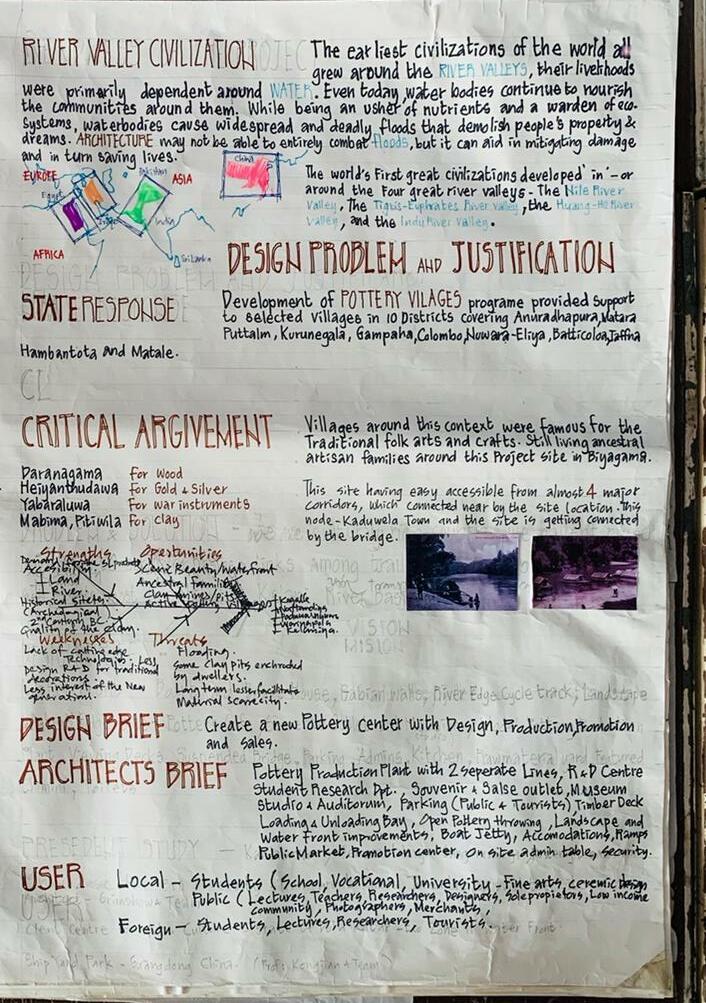 RIVER VALLEY CIVILIZATION
The earliest civilizations of the world all
grew around the RIVER VALLEYS, their livelihoods
were primarily dependent around WATER. Even today, water bodies continue to nourish
the communities around them. While being an usher of nutrients and a warden of eco-
systems, waterbodies cause widespread and deadly floods that demolish people's property &
dreams. ARCHITECTURE may not be able to entirely combat floods, but it can aid in mitigating damage
and in turn saving lives.
EUROPE
ASIA
China
Egypt
India
AFRICA
Sri Lanka
The world's first great civilizations developed in - or
around the Four great river valleys - The Nile River
Valley, The Tigris-Euphrates River valley, the Huang-He River
Valley, and the Indu River Valley.
DESIGN PROBLEM AND JUSTIFICATION
STATE RESPONSE
Development of POTTERY VILAGES programe provided support
to selected villages in 10 Districts covering Anuradhapura, Matara
Puttalm, Kurunegala, Gampaha, Colombo, Nuwara-Eliya, Batticoloa, Jaffna
Hambantota and Matale.
CL
CRITICAL ARGIVEMENT
Villages around this context were famous for the
Traditional folk arts and crafts. Still living ancestral
artisan families around this Project site in Biyagama.
Daranagama for wood
Heiyanthudawa for Gold & Silver
Yabaraluwa for war instruments
Mabima, Pitiwila for clay
This site having easy accessible from almost 4 major
corridors, which connected near by the site location. This
node-Kaduwela Town and the site is getting connected
by the bridge.
Strengths
Accessibility
Land
River
Historical sites
Archadlogical
2nd Century BC
Quality of the clay.
Oportunities
Scenic Beauty/waterfront
Ancestral families
Clay mines/pits
Kegalle
Weeknesses
Lack of cutting edge
Technologies. Less
Design R&D for traditional
decorations.
Less interest of the New
generation.
Threats
Flooding.
Some clay pits enchroched
by dwellers.
Long term lesser facilitate
Material scarecity.
VISION
MISSION
DESIGN BRIEF
Create a new Pottery center with Design, Production, Promotion
and sales.
ARCHITECTS BRIEF
Pottery Production Plant with 2 seperate Lines, R&D Centre
Student Research Dpt., Souvenir & Salse outlet, Museum
Studio & Auditorium, Parking (Public & Tourists) Timber Deck
Loading & Unloading Bay, Open Pottery throwing, Landscape and
Water front improvements, Boat Jetty, Accomodations, Ramps
Public Market, Promotion center, On site admin table, Security.
USER
Local - Students (School, Vocational, University - Fine arts, ceremic design
Public (Lectures, Teachers, Researchers, Designers, Sole propietors, Low income
community, Photographers, Merchants,
Foreign - Students, Lectures, Researchers, Tourists.